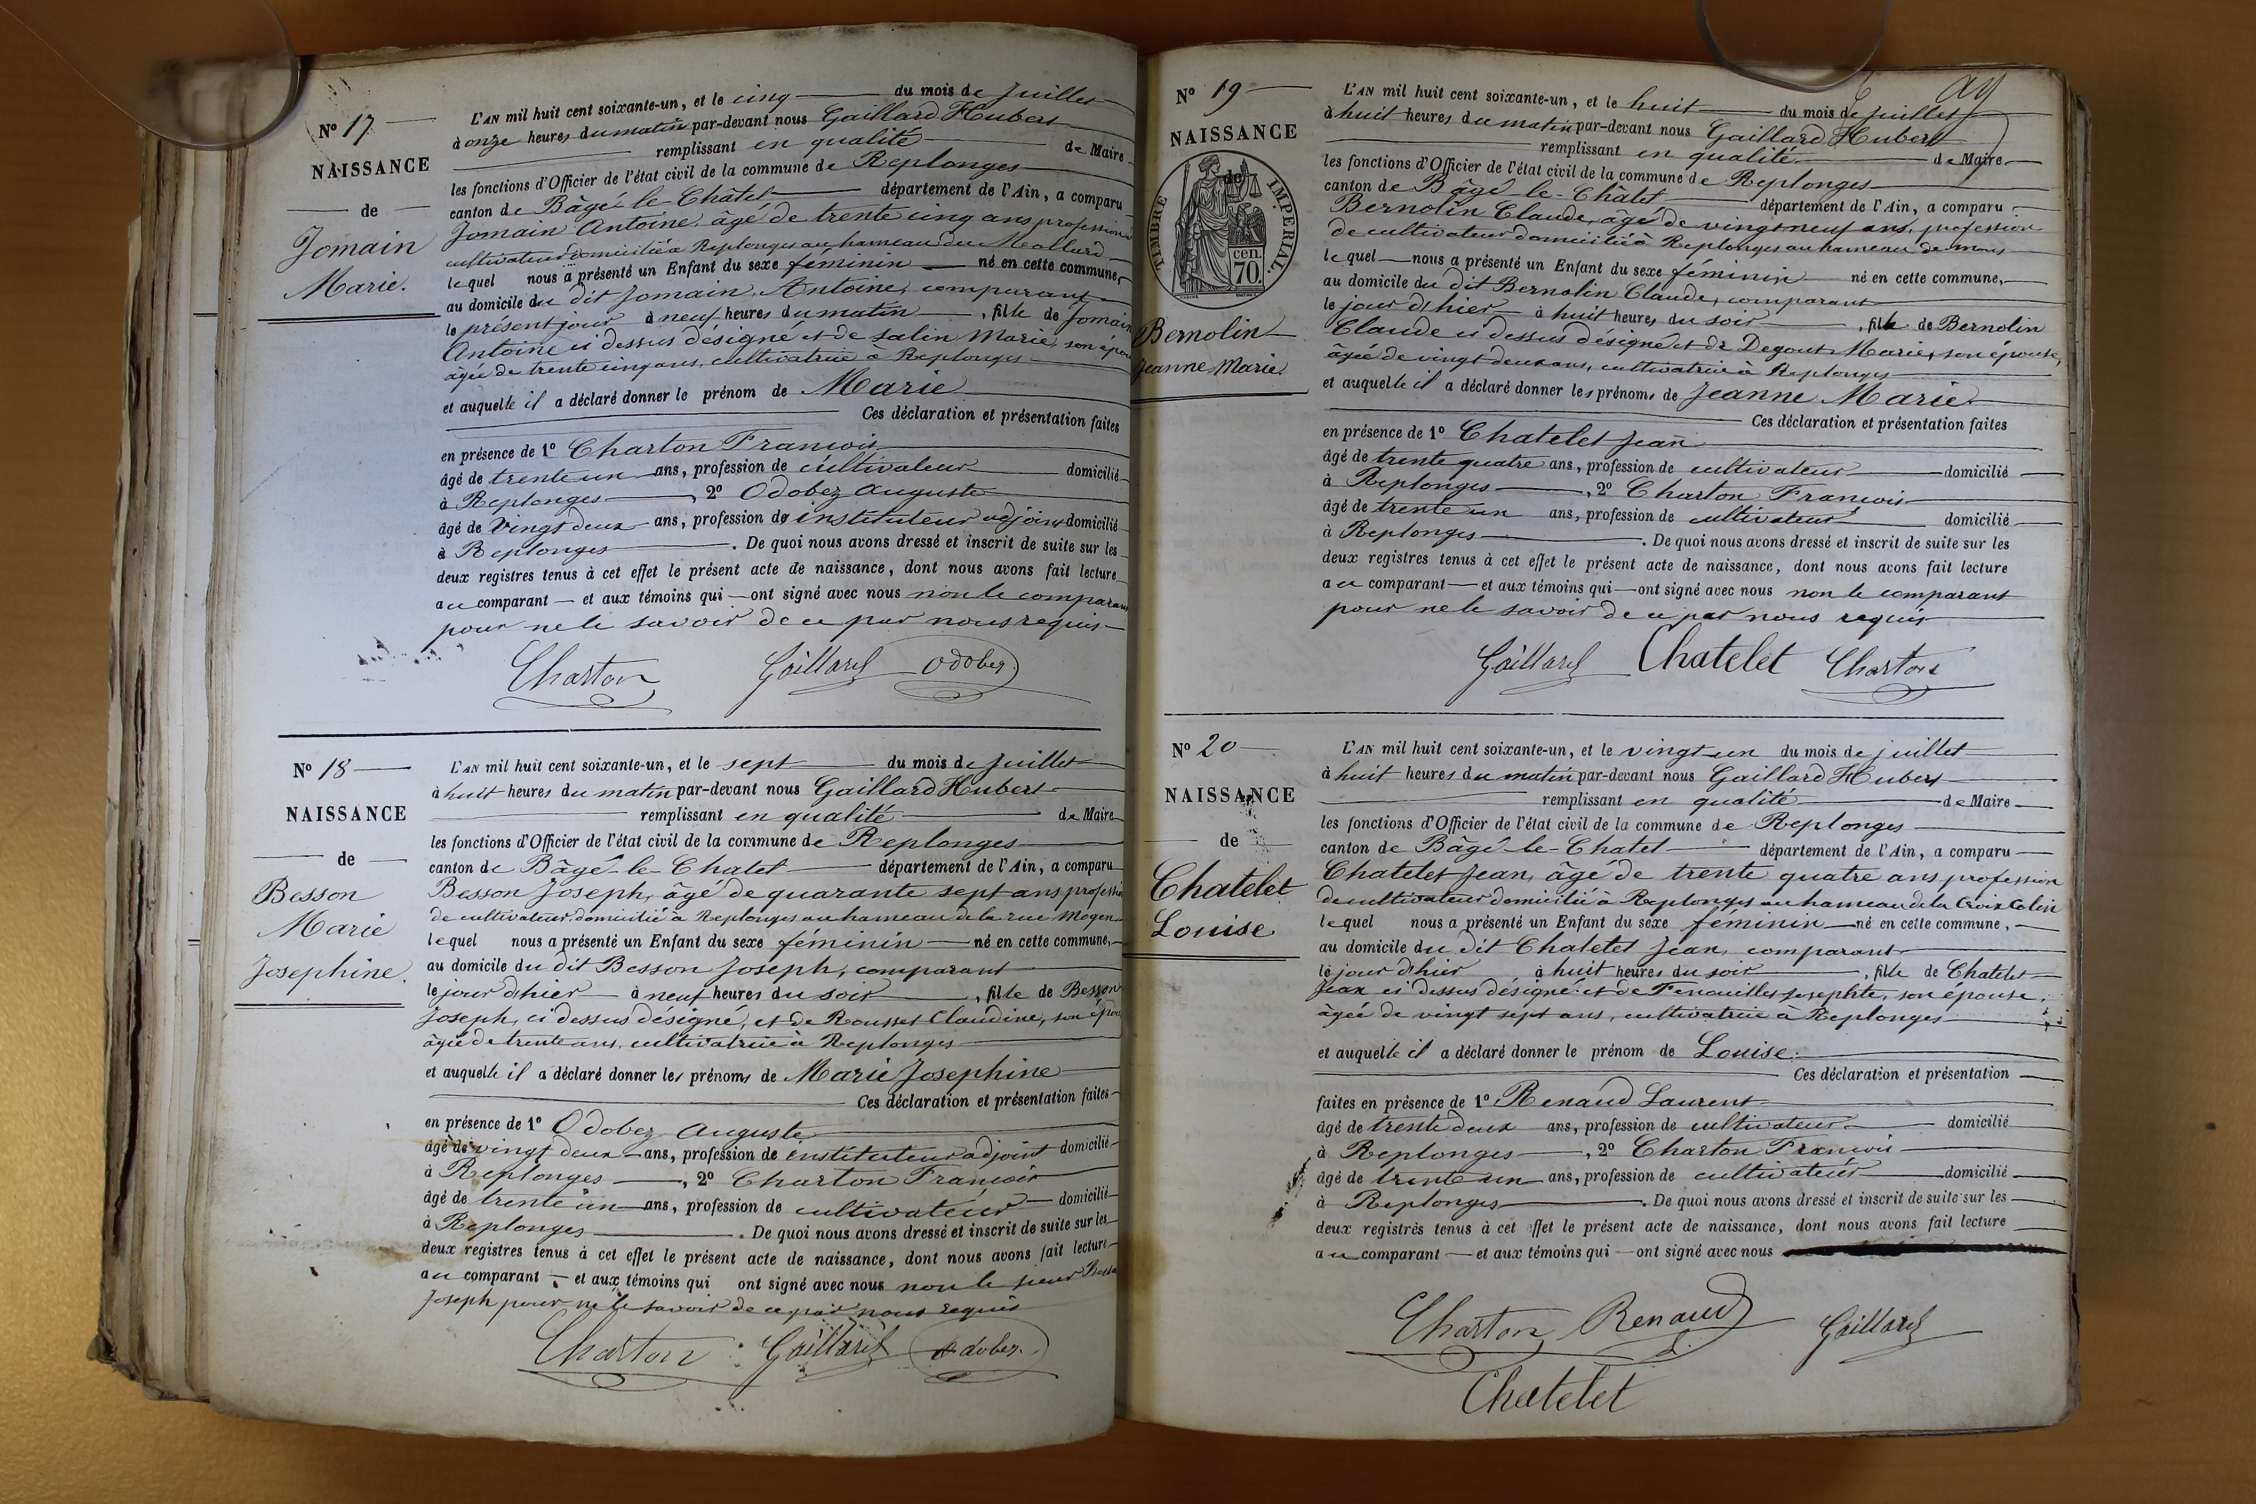 Nº 17
NAISSANCE
de
Jomain
Marie.
L'AN mil huit cent soixante-un, et le cinq du mois de Juillet
à onze heures du matin par-devant nous Gaillard Hubert
remplissant en qualité de Maire
les fonctions d'Officier de l'état civil de la commune de Replonges
canton de Bâgé-le-Châtel département de l'Ain, a comparu
Jomain Antoine, âgé de trente cinq ans, profession
cultivateur domicilié à Replonges au hameau du Mollard
lequel nous a présenté un Enfant du sexe féminin né en cette commune,
au domicile du dit Jomain Antoine, comparant
le présent jour à neuf heures du matin, fille de Jomain
Antoine ci dessus désigné et de Salin Marie, son
âgée de trente cinq ans, cultivatrice à Replonges
et auquelle il a déclaré donner le prénom de Marie
Ces déclaration et présentation faites
en présence de 1º Charton François
âgé de trente un ans, profession de cultivateur domicilié
à Replonges, 2º Odobez Auguste
âgé de vingt deux ans, profession de instituteur adjoint domicilié
à Replonges. De quoi nous avons dressé et inscrit de suite sur les
deux registres tenus à cet effet le présent acte de naissance, dont nous avons fait lecture
au comparant et aux témoins qui ont signé avec nous non le comparant
pour ne le savoir de ce par nous requis
Charton Gaillard Odobez
Nº 18
NAISSANCE
de
Besson
Marie
Josephine.
L'AN mil huit cent soixante-un, et le sept du mois de Juillet
à huit heures du matin par-devant nous Gaillard Hubert
remplissant en qualité de Maire
les fonctions d'Officier de l'état civil de la commune de Replonges
canton de Bâgé-le-Chatel département de l'Ain, a comparu
Besson Joseph, âgé de quarante sept ans
de cultivateur domicilié à Replonges au hameau de la rue Moyen
lequel nous a présenté un Enfant du sexe féminin né en cette commune,
au domicile du dit Besson Joseph, comparant
le jour d'hier à neuf heures du soir, fille de Besson
Joseph, ci dessus désigné, et de Rousset Claudine, son
âgée de trente ans, cultivatrice à Replonges
et auquelle il a déclaré donner les prénoms de Marie Josephine
Ces déclaration et présentation faites
en présence de 1º Odobez Auguste
âgé de vingt deux ans, profession de instituteur adjoint domicilié
à Replonges, 2º Charton François
âgé de trente un ans, profession de cultivateur domicilié
à Replonges. De quoi nous avons dressé et inscrit de suite sur les
deux registres tenus à cet effet le présent acte de naissance, dont nous avons fait lecture
au comparant et aux témoins qui ont signé avec nous non le sieur
Joseph pour ne le savoir de ce par nous requis
Charton Gaillard Odobez
Nº 19
NAISSANCE
de
TIMBRE IMPERIAL.
CEN.
70.
Bernolin
Jeanne Marie.
L'AN mil huit cent soixante-un, et le huit du mois de Juillet
à huit heures du matin par-devant nous Gaillard Hubert
remplissant en qualité de Maire
les fonctions d'Officier de l'état civil de la commune de Replonges
canton de Bâgé-le-Châtel département de l'Ain, a comparu
Bernolin Claude, âgé de vingt neuf ans, profession
de cultivateur domicilié à Replonges au hameau de
lequel nous a présenté un Enfant du sexe féminin né en cette commune,
au domicile du dit Bernolin Claude, comparant
le jour d'hier à huit heures du soir, fille de Bernolin
Claude ci dessus désigné et de Degout Marie, son épouse,
âgée de vingt deux ans, cultivatrice à Replonges
et auquelle il a déclaré donner les prénoms de Jeanne Marie
Ces déclaration et présentation faites
en présence de 1º Chatelet Jean
âgé de trente quatre ans, profession de cultivateur domicilié
à Replonges, 2º Charton François
âgé de trente un ans, profession de cultivateur domicilié
à Replonges. De quoi nous avons dressé et inscrit de suite sur les
deux registres tenus à cet effet le présent acte de naissance, dont nous avons fait lecture
au comparant et aux témoins qui ont signé avec nous non le comparant
pour ne le savoir de ce par nous requis
Gaillard Chatelet Charton
Nº 20
NAISSANCE
de
Chatelet
Louise
L'AN mil huit cent soixante-un, et le vingt un du mois de juillet
à huit heures du matin par-devant nous Gaillard Hubert
remplissant en qualité de Maire
les fonctions d'Officier de l'état civil de la commune de Replonges
canton de Bâgé-le-Chatel département de l'Ain, a comparu
Chatelet Jean, âgé de trente quatre ans profession
de cultivateur domicilié à Replonges au hameau de la Croix Colin
lequel nous a présenté un Enfant du sexe féminin né en cette commune,
au domicile du dit Chatelet Jean, comparant
le jour d'hier à huit heures du soir, fille de Chatelet
Jean ci dessus désigné et de son épouse,
âgée de vingt sept ans, cultivatrice à Replonges
et auquelle il a déclaré donner le prénom de Louise.
Ces déclaration et présentation
faites en présence de 1º Renaud Laurent
âgé de trente deux ans, profession de cultivateur domicilié
à Replonges, 2º Charton François
âgé de trente un ans, profession de cultivateur domicilié
à Replonges. De quoi nous avons dressé et inscrit de suite sur les
deux registres tenus à cet effet le présent acte de naissance, dont nous avons fait lecture
au comparant et aux témoins qui ont signé avec nous
Charton Renaud Gaillard
Chatelet